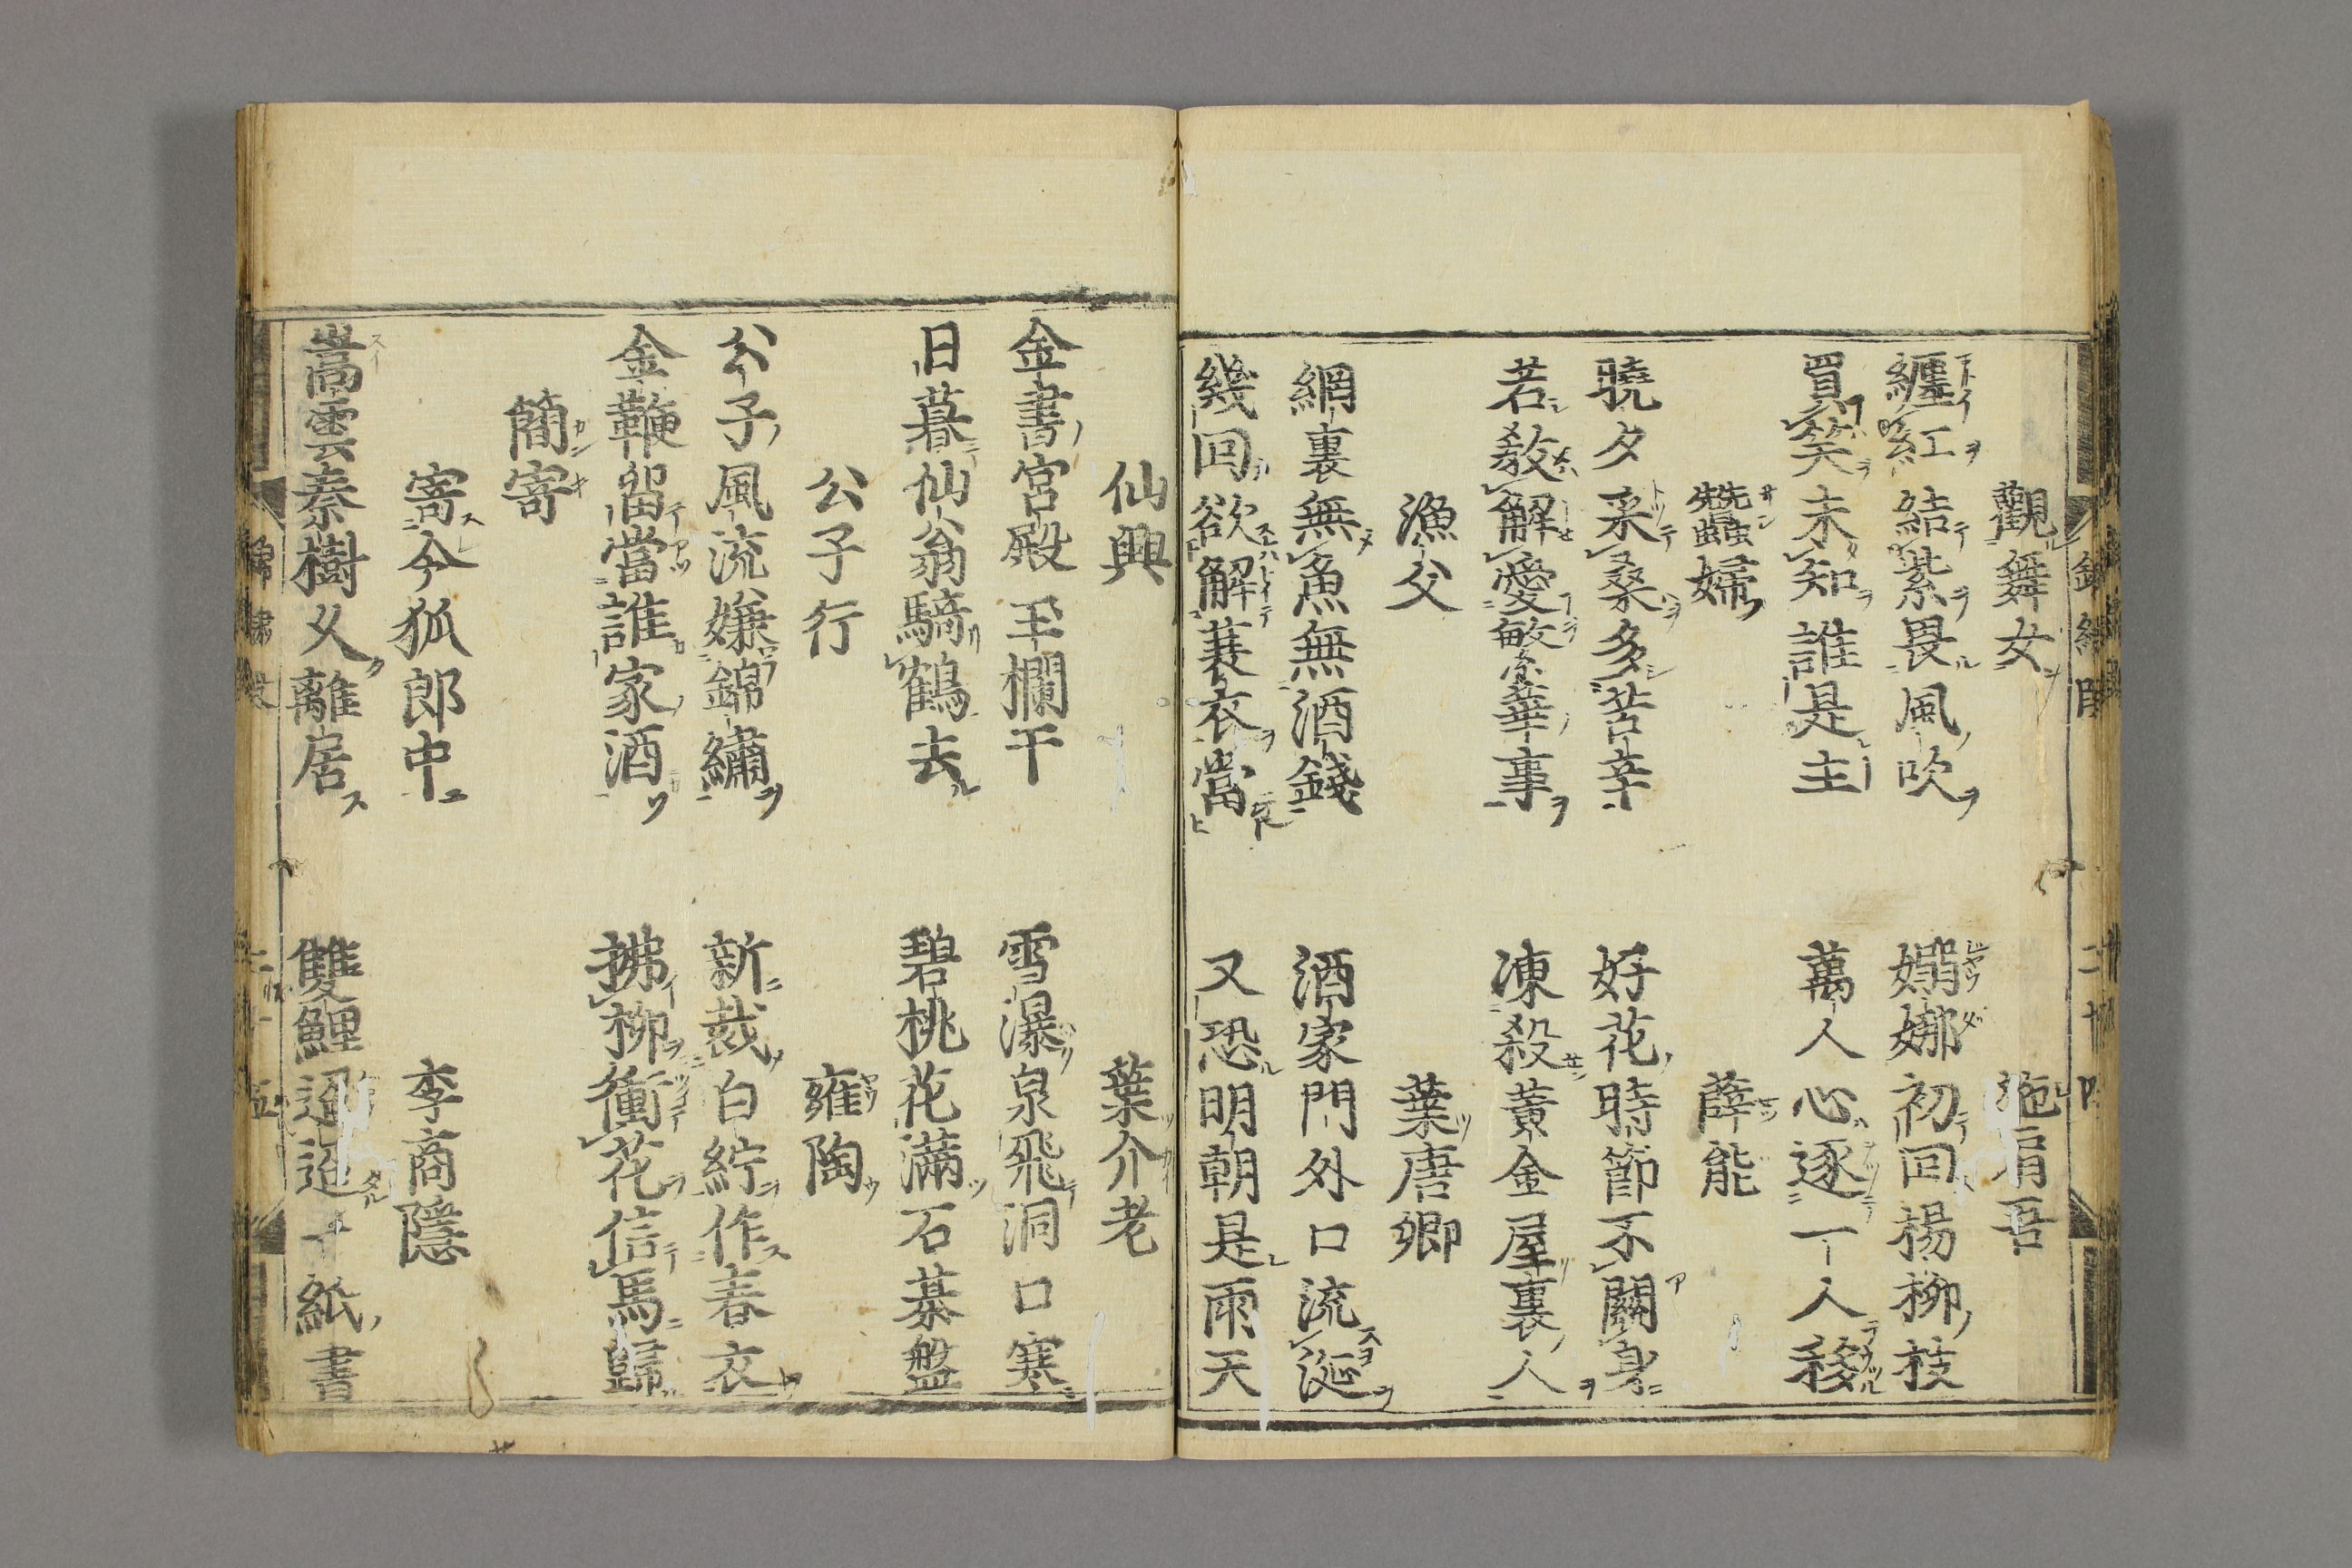 觀舞女 施肩吾
纏紅結紫畏風吹 嫋娜初回楊柳枝
買笑未知誰是主 萬人心逐一人移
蠶婦 薛能
曉夕采桑多苦辛 好花時節不關身
若教解愛繁華事 凍殺黃金屋裏人
漁父 葉唐卿
網裏無魚無酒錢 酒家門外口流涎
幾回欲解蓑衣當 又恐明朝是雨天
仙興 葉介老
金書宮殿玉欄干 雪瀑泉飛洞口寒
日暮仙翁騎鶴去 碧桃花滿石棊盤
公子行 雍陶
公子風流嫌錦繡 新裁白紵作春衣
金鞭留當誰家酒 拂柳衝花信馬歸
簡寄
寄令狐郎中 李商隱
嵩雲秦樹久離居 雙鯉迢迢一紙書